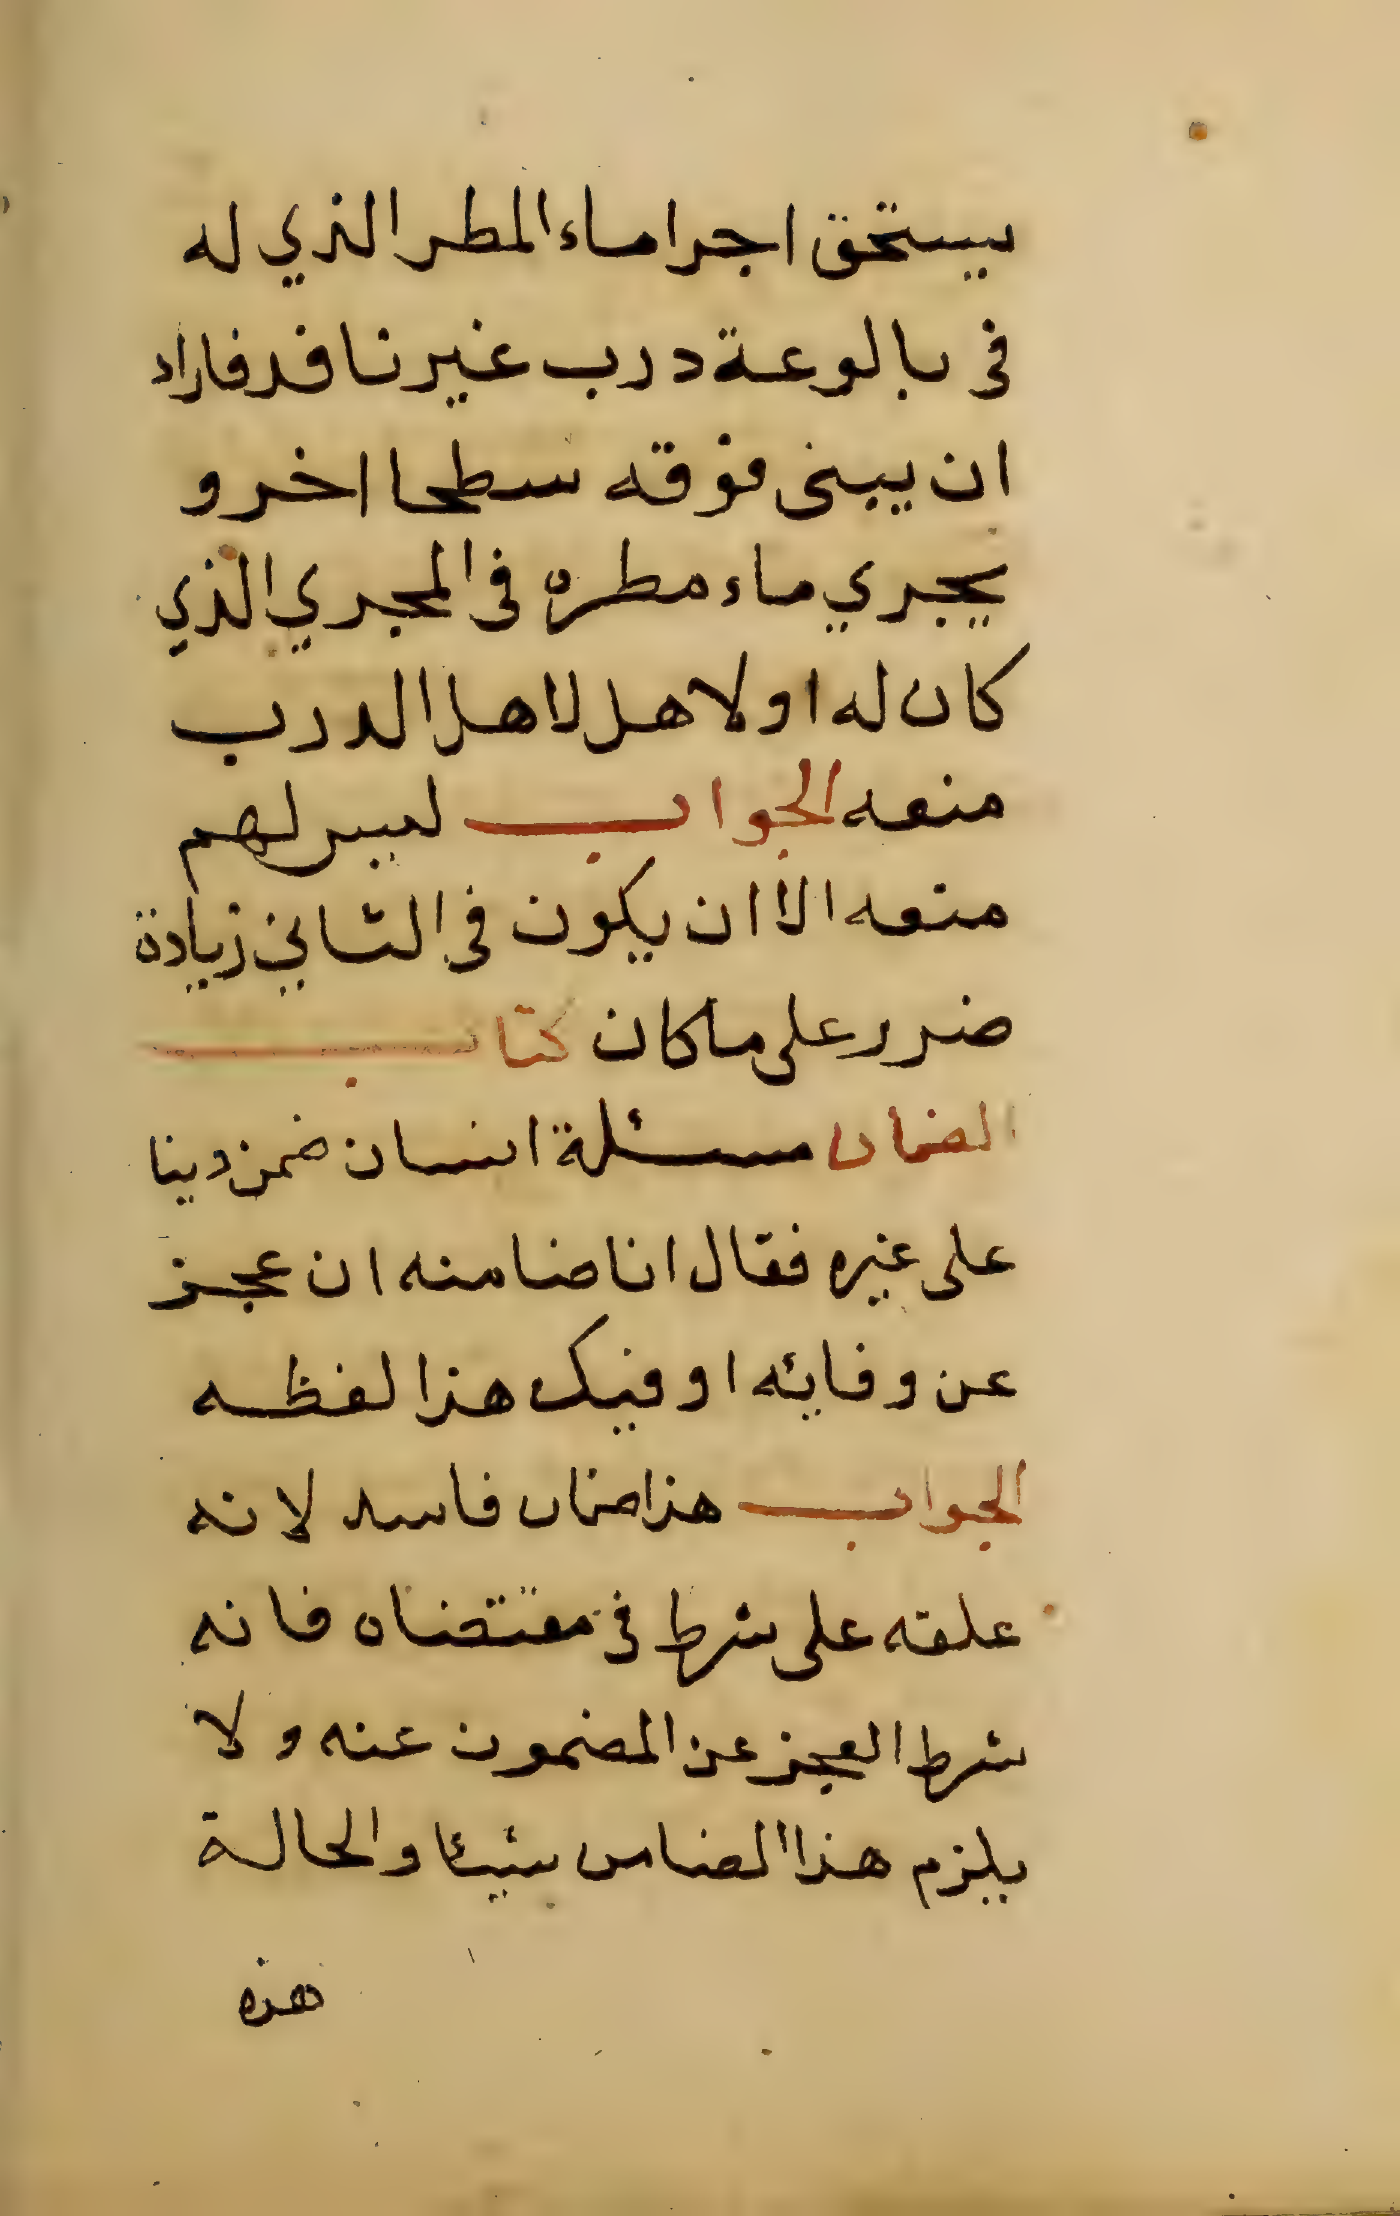 يستحق اجرا ماء المطر الذي له
في بالوعة درب غير نافد فاراد
ان يبنى فوقه سطحا اخر و
يجري ماء مطره في المجري الذي
كان له اولا هل لاهل الدرب
منعه الجواب ليس لهم
منعه الا ان يكون في الثاني زيادة
ضرر على ما كان كتاب
الضمان مسئلة انسان ضمن دينا
على غيره فقال انا ضامنه ان عجز
عن وفائه اوفيك هذا لفظه
الجواب هذا ضمان فاسد لانه
علقه على شرط في مقتضاه فانه
شرط العجز عن المضمون عنه ولا
يلزم هذا الضامن شيئا والحالة
هذه